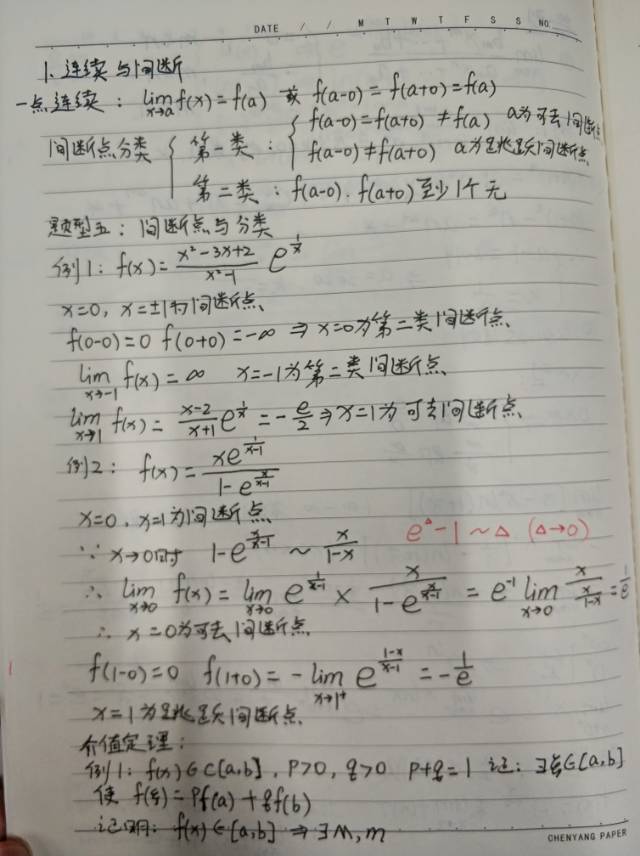 DATE / / M T W T F S S NO.
1. 连续与间断
一点连续：lim_{x→a} f(x)=f(a) 或 f(a-0)=f(a+0)=f(a)
间断点分类 { 第一类：{ f(a-0)=f(a+0)≠f(a) a为可去间断点
f(a-0)≠f(a+0) a为跳跃间断点
第二类：f(a-0).f(a+0)至少1个无
题型五：间断点与分类
例1：f(x)=\frac{x²-3x+2}{x²-1} e^{\frac{1}{x}}
x=0，x=±1为间断点
f(0-0)=0 f(0+0)=-∞ ⇒ x=0为第二类间断点
lim_{x→-1} f(x)=∞ x=-1为第二类间断点
lim_{x→1} f(x)=\frac{x-2}{x+1}e^{\frac{1}{x}}=-\frac{e}{2} ⇒ x=1为可去间断点
例2：f(x)=\frac{xe^{\frac{1}{x-1}}}{1-e^{\frac{x}{x-1}}}
x=0，x=1为间断点
∵ x→0时 1-e^{\frac{x}{x-1}} ~ \frac{x}{1-x} e^Δ-1~Δ (Δ→0)
∴ lim_{x→0} f(x)=lim_{x→0} e^{\frac{1}{x-1}} × \frac{x}{1-e^{\frac{x}{x-1}}} = e^{-1} lim_{x→0} \frac{x}{\frac{x}{1-x}}=\frac{1}{e}
∴ x=0为可去间断点
f(1-0)=0 f(1+0)=-lim_{x→1⁺} e^{\frac{1-x}{x-1}}=-\frac{1}{e}
x=1为跳跃间断点
介值定理：
例1：f(x)∈C[a,b]，P>0，q>0 P+q=1 证：∃ξ∈[a,b]
使 f(ξ)=Pf(a)+qf(b)
证明：f(x)∈[a,b] ⇒ ∃M,m
CHENYANG PAPER